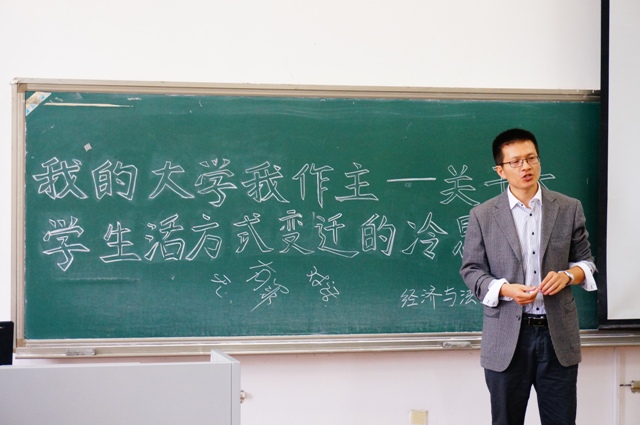 我的大学我作主一关于
学生活方式变迁的冷思
经济与法